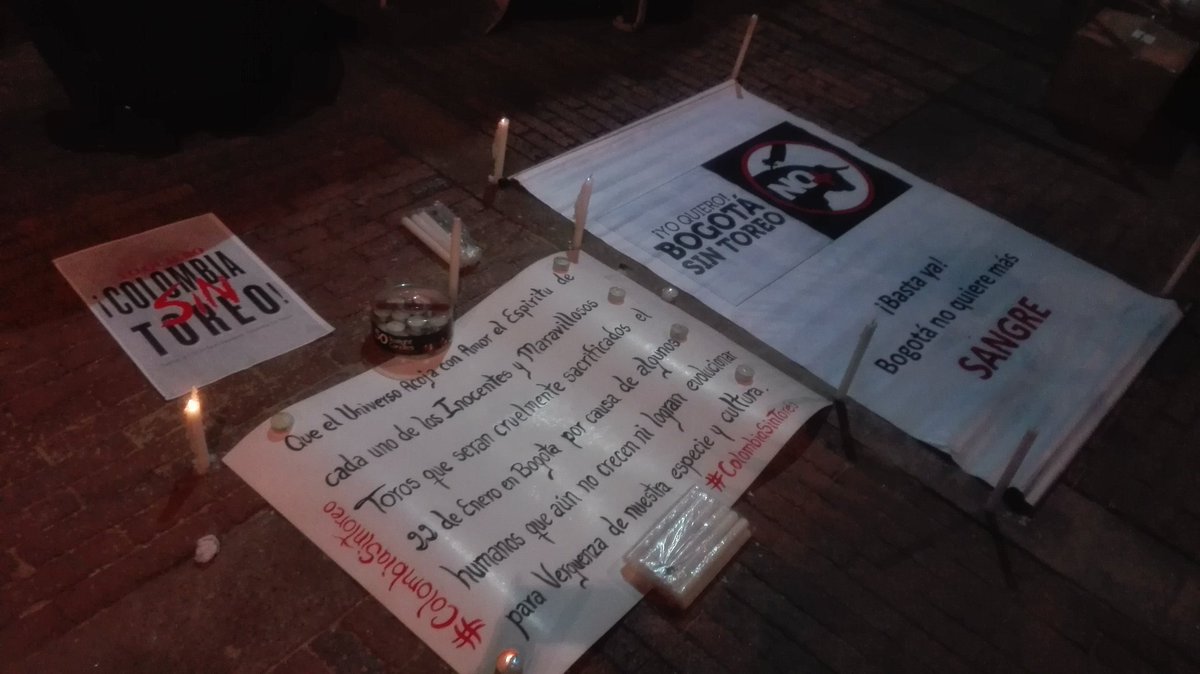 ¡COLOMBIA
SIN
TOREO!
Que el Universo Acoja con Amor el Espíritu de
cada uno de los Inocentes y Maravillosos
Toros que seran cruelmente sacrificados el
22 de Enero en Bogotá por causa de algunos
humanos que aún no crecen ni logran evolucionar
para Vergüenza de nuestra especie y cultura.
#ColombiaSinToreo
#ColombiaSinToreo
NO
¡YO QUIERO!
BOGOTÁ
SIN TOREO
¡Basta ya!
Bogotá no quiere más
SANGRE